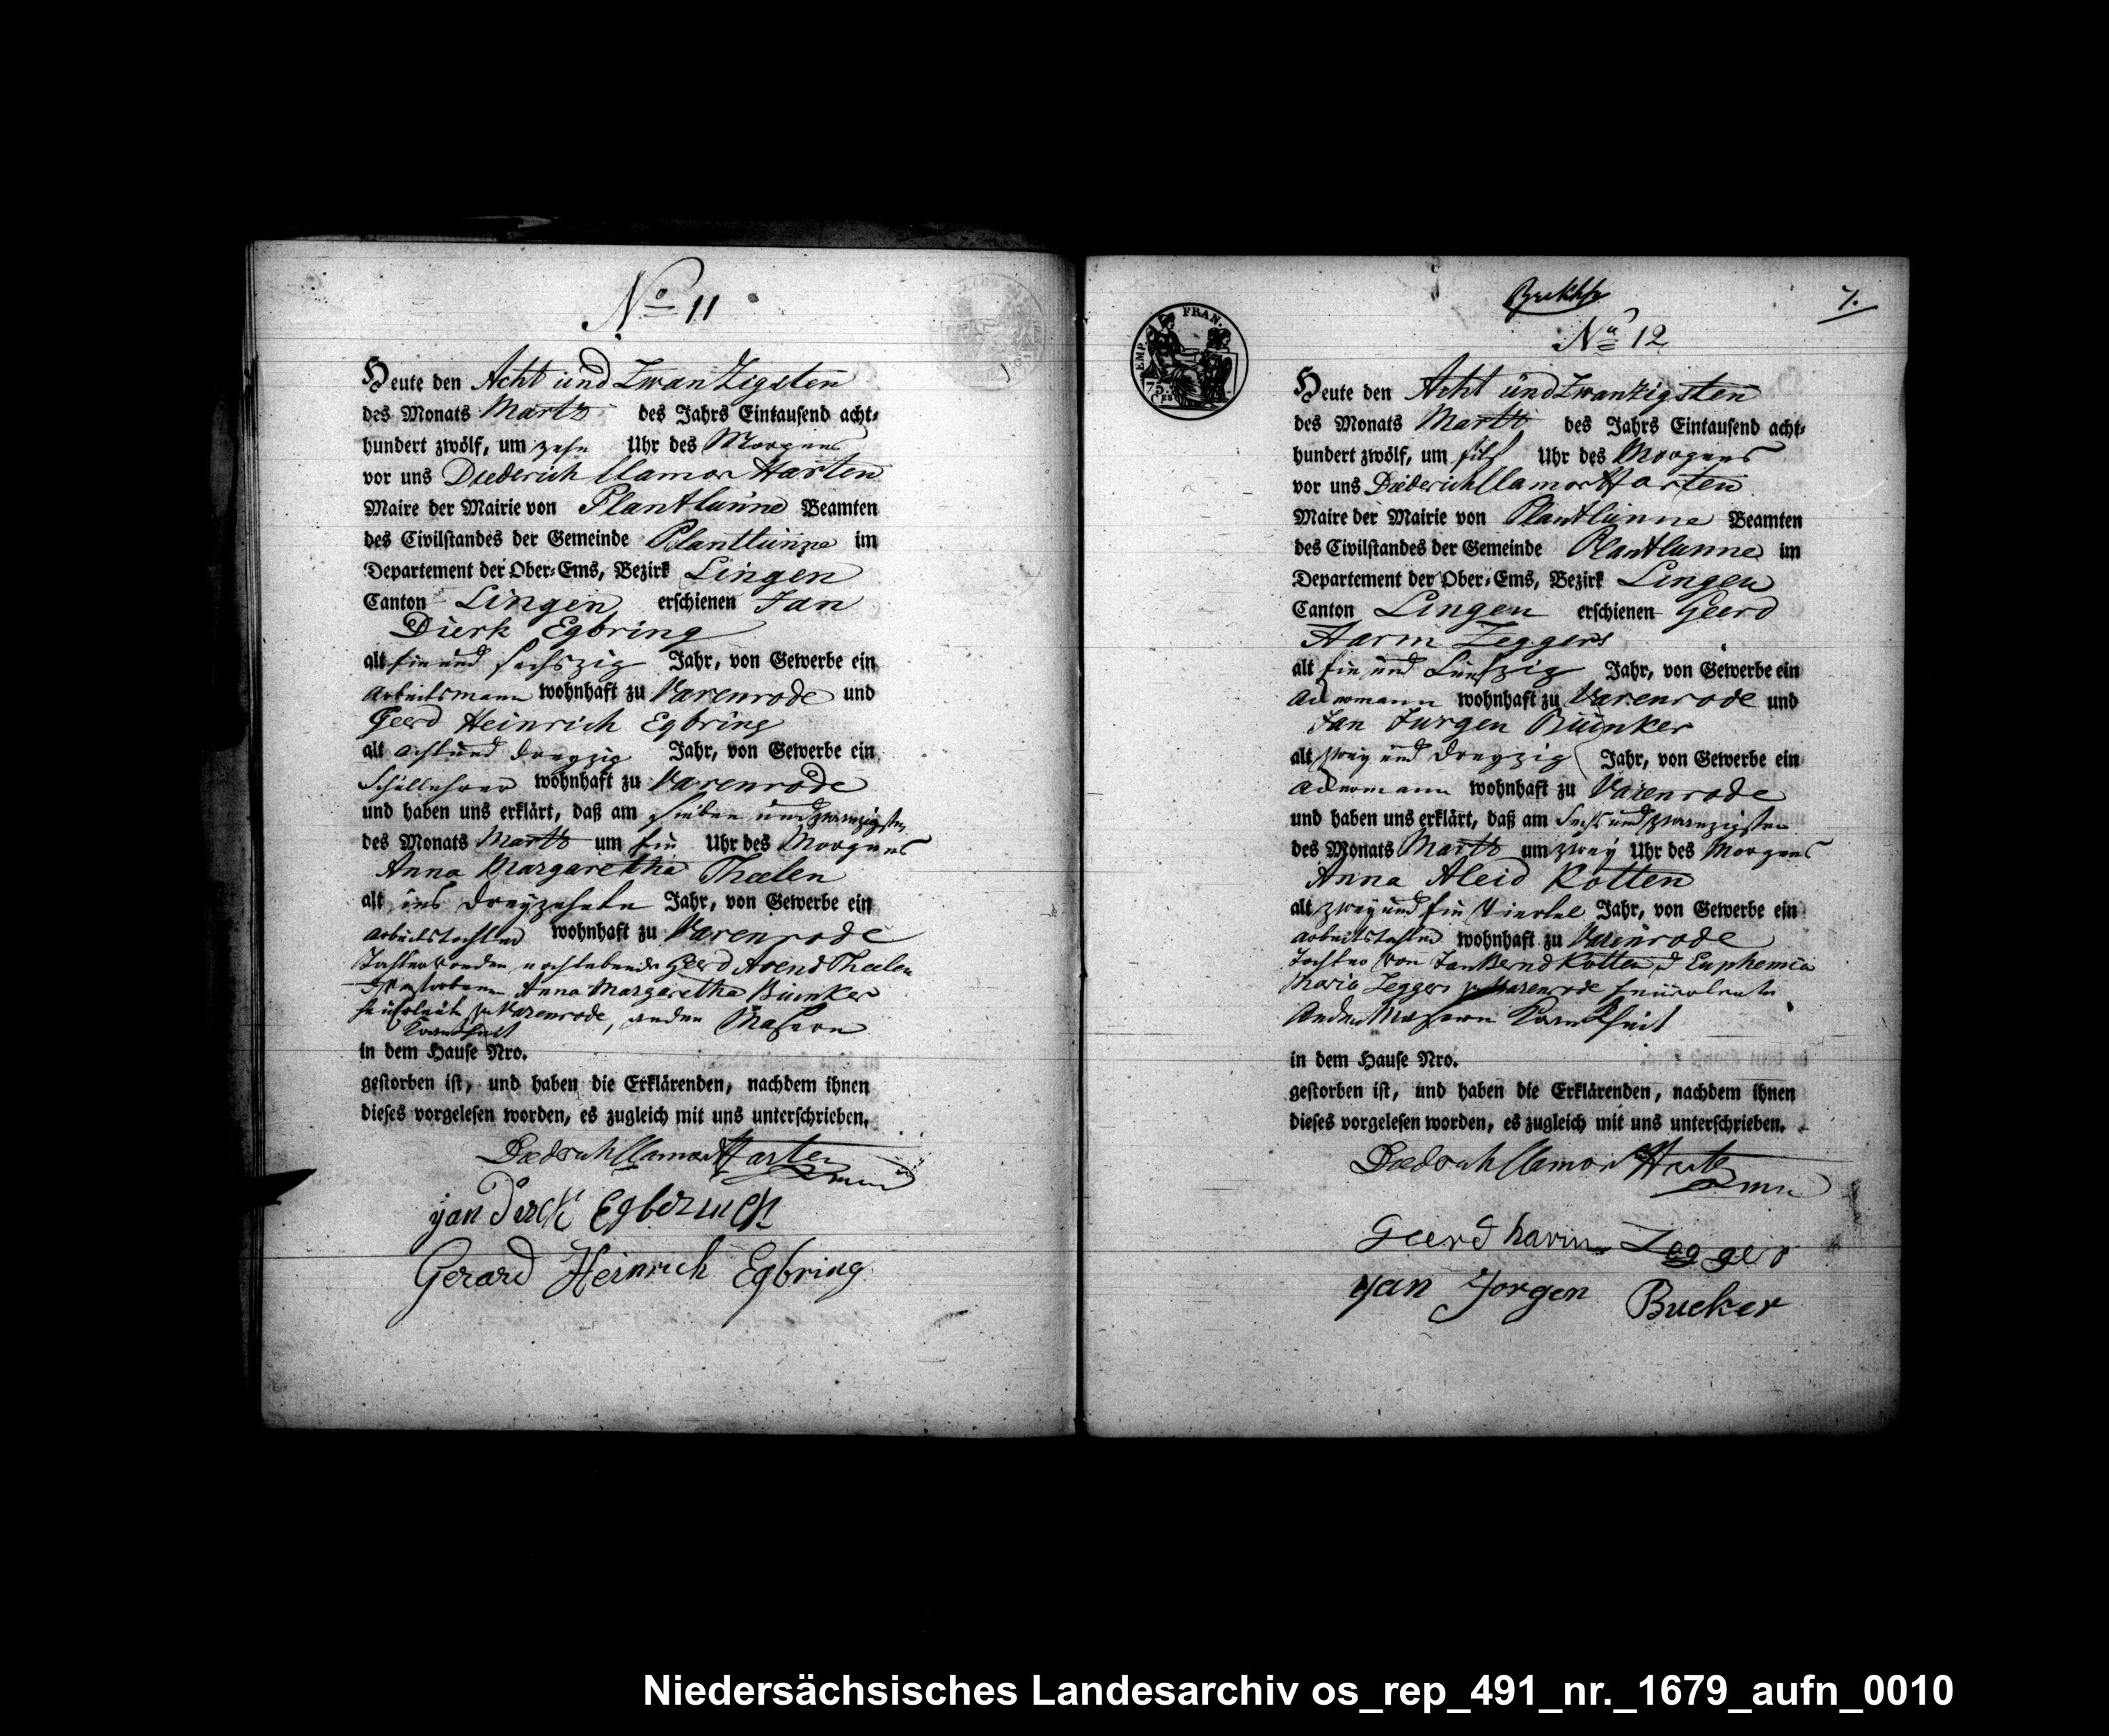 No 11
Heute den Acht und Zwanzigsten
des Monats Martz des Jahrs Eintausend acht-
hundert zwölf, um zehn Uhr des Morgens
vor uns Diederich Clamor Harten
Maire der Mairie von Plantlünne Beamten
des Civilstandes der Gemeinde Plantlünne im
Departement der Ober-Ems, Bezirk Lingen
Canton Lingen erschienen Jan
Dierk Egbring
alt ein und sechszig Jahr, von Gewerbe ein
Arbeitsmann wohnhaft zu Varenrode und
Geerd Heinrich Egbring
alt acht und dreyzig Jahr, von Gewerbe ein
Schullehrer wohnhaft zu Varenrode
und haben uns erklärt, daß am sieben und zwanzigsten
des Monats Martz um ein Uhr des Morgens
Anna Margaretha Thelen
alt ins dreyzehnte Jahr, von Gewerbe ein
Arbeitstochter wohnhaft zu Varenrode
Tochter von den nochlebende Geerd Arend Thelen
Anna Margaretha Bünker
Heuerleute zu Varenrode, an den Masern
Krankheit
in dem Hause Nro.
gestorben ist, und haben die Erklärenden, nachdem ihnen
dieses vorgelesen worden, es zugleich mit uns unterschrieben.
Diedrich Clamor Harten
jan Dirck Egberinck
Gerard Heinrich Egbring
7.
No 12
EMP. FRAN.
75. CES
Heute den Acht und Zwantzigsten
des Monats Martz des Jahrs Eintausend acht-
hundert zwölf, um eilf Uhr des Morgens
vor uns Diederich Clamor Harten
Maire der Mairie von Plantlünne Beamten
des Civilstandes der Gemeinde Plantlünne im
Departement der Ober-Ems, Bezirk Lingen
Canton Lingen erschienen Geerd
Harm Zeggers
alt ein und fünfzig Jahr, von Gewerbe ein
Ackermann wohnhaft zu Varenrode und
Jan Jurgen Büünker
alt zwey und dreyzig Jahr, von Gewerbe ein
Ackermann wohnhaft zu Varenrode
und haben uns erklärt, daß am sechs und zwanzigsten
des Monats Martz um zwey Uhr des Morgens
Anna Aleid Kotten
alt zwey und ein Viertel Jahr, von Gewerbe ein
Arbeitstochter wohnhaft zu Varenrode
Tochter von Jan Bernd Kotten Euphemia
Maria Zeggers zu Varenrode Heuerleute
An den Masern Krankheit
in dem Hause Nro.
gestorben ist, und haben die Erklärenden, nachdem ihnen
dieses vorgelesen worden, es zugleich mit uns unterschrieben.
Diedrich Clamor Harten
Geerd harm Zegger
yan Jorgen Bueker
Niedersächsisches Landesarchiv os_rep_491_nr._1679_aufn_0010